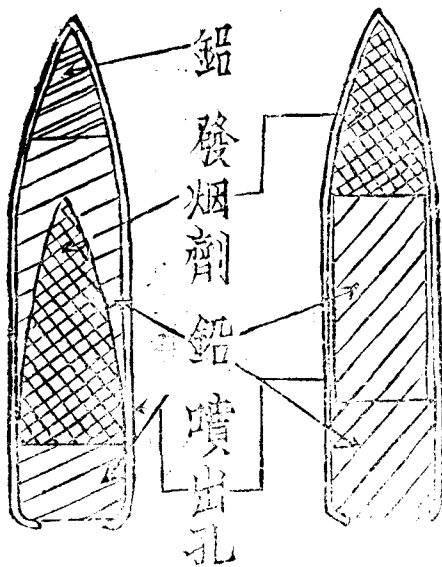 鋁
發烟劑
鉛
噴出孔